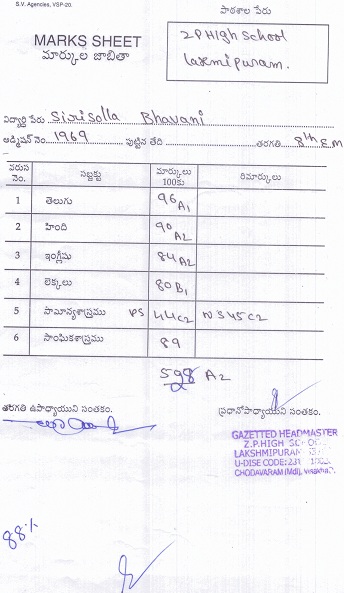 S.V. Agencies, VSP-20.
పాఠశాల పేరు
MARKS SHEET
మార్కుల జాబితా
Z P High School
Laxmipuram.
విద్యార్థి పేరు Sirisolla Bhavani
అడ్మిషన్ నెం. 1969 పుట్టిన తేది తరగతి 8th E.M
వరుస నెం. సబ్జక్టు మార్కులు 100కు రిమార్కులు
1 తెలుగు 96 A1
2 హింది 90 A2
3 ఇంగ్లీషు 84 A2
4 లెక్కలు 80 B1
5 సామాన్యశాస్త్రము PS 44 C2 NS 45 C2
6 సాంఘికశాస్త్రము 89
598 A2
తరగతి ఉపాధ్యాయుని సంతకం. ప్రధానోపాధ్యాయుని సంతకం.
GAZETTED HEADMASTER
Z.P.HIGH
LAKSHMIPURAM
U-DISE CODE:231
CHODAVARAM (Mdl),
88%